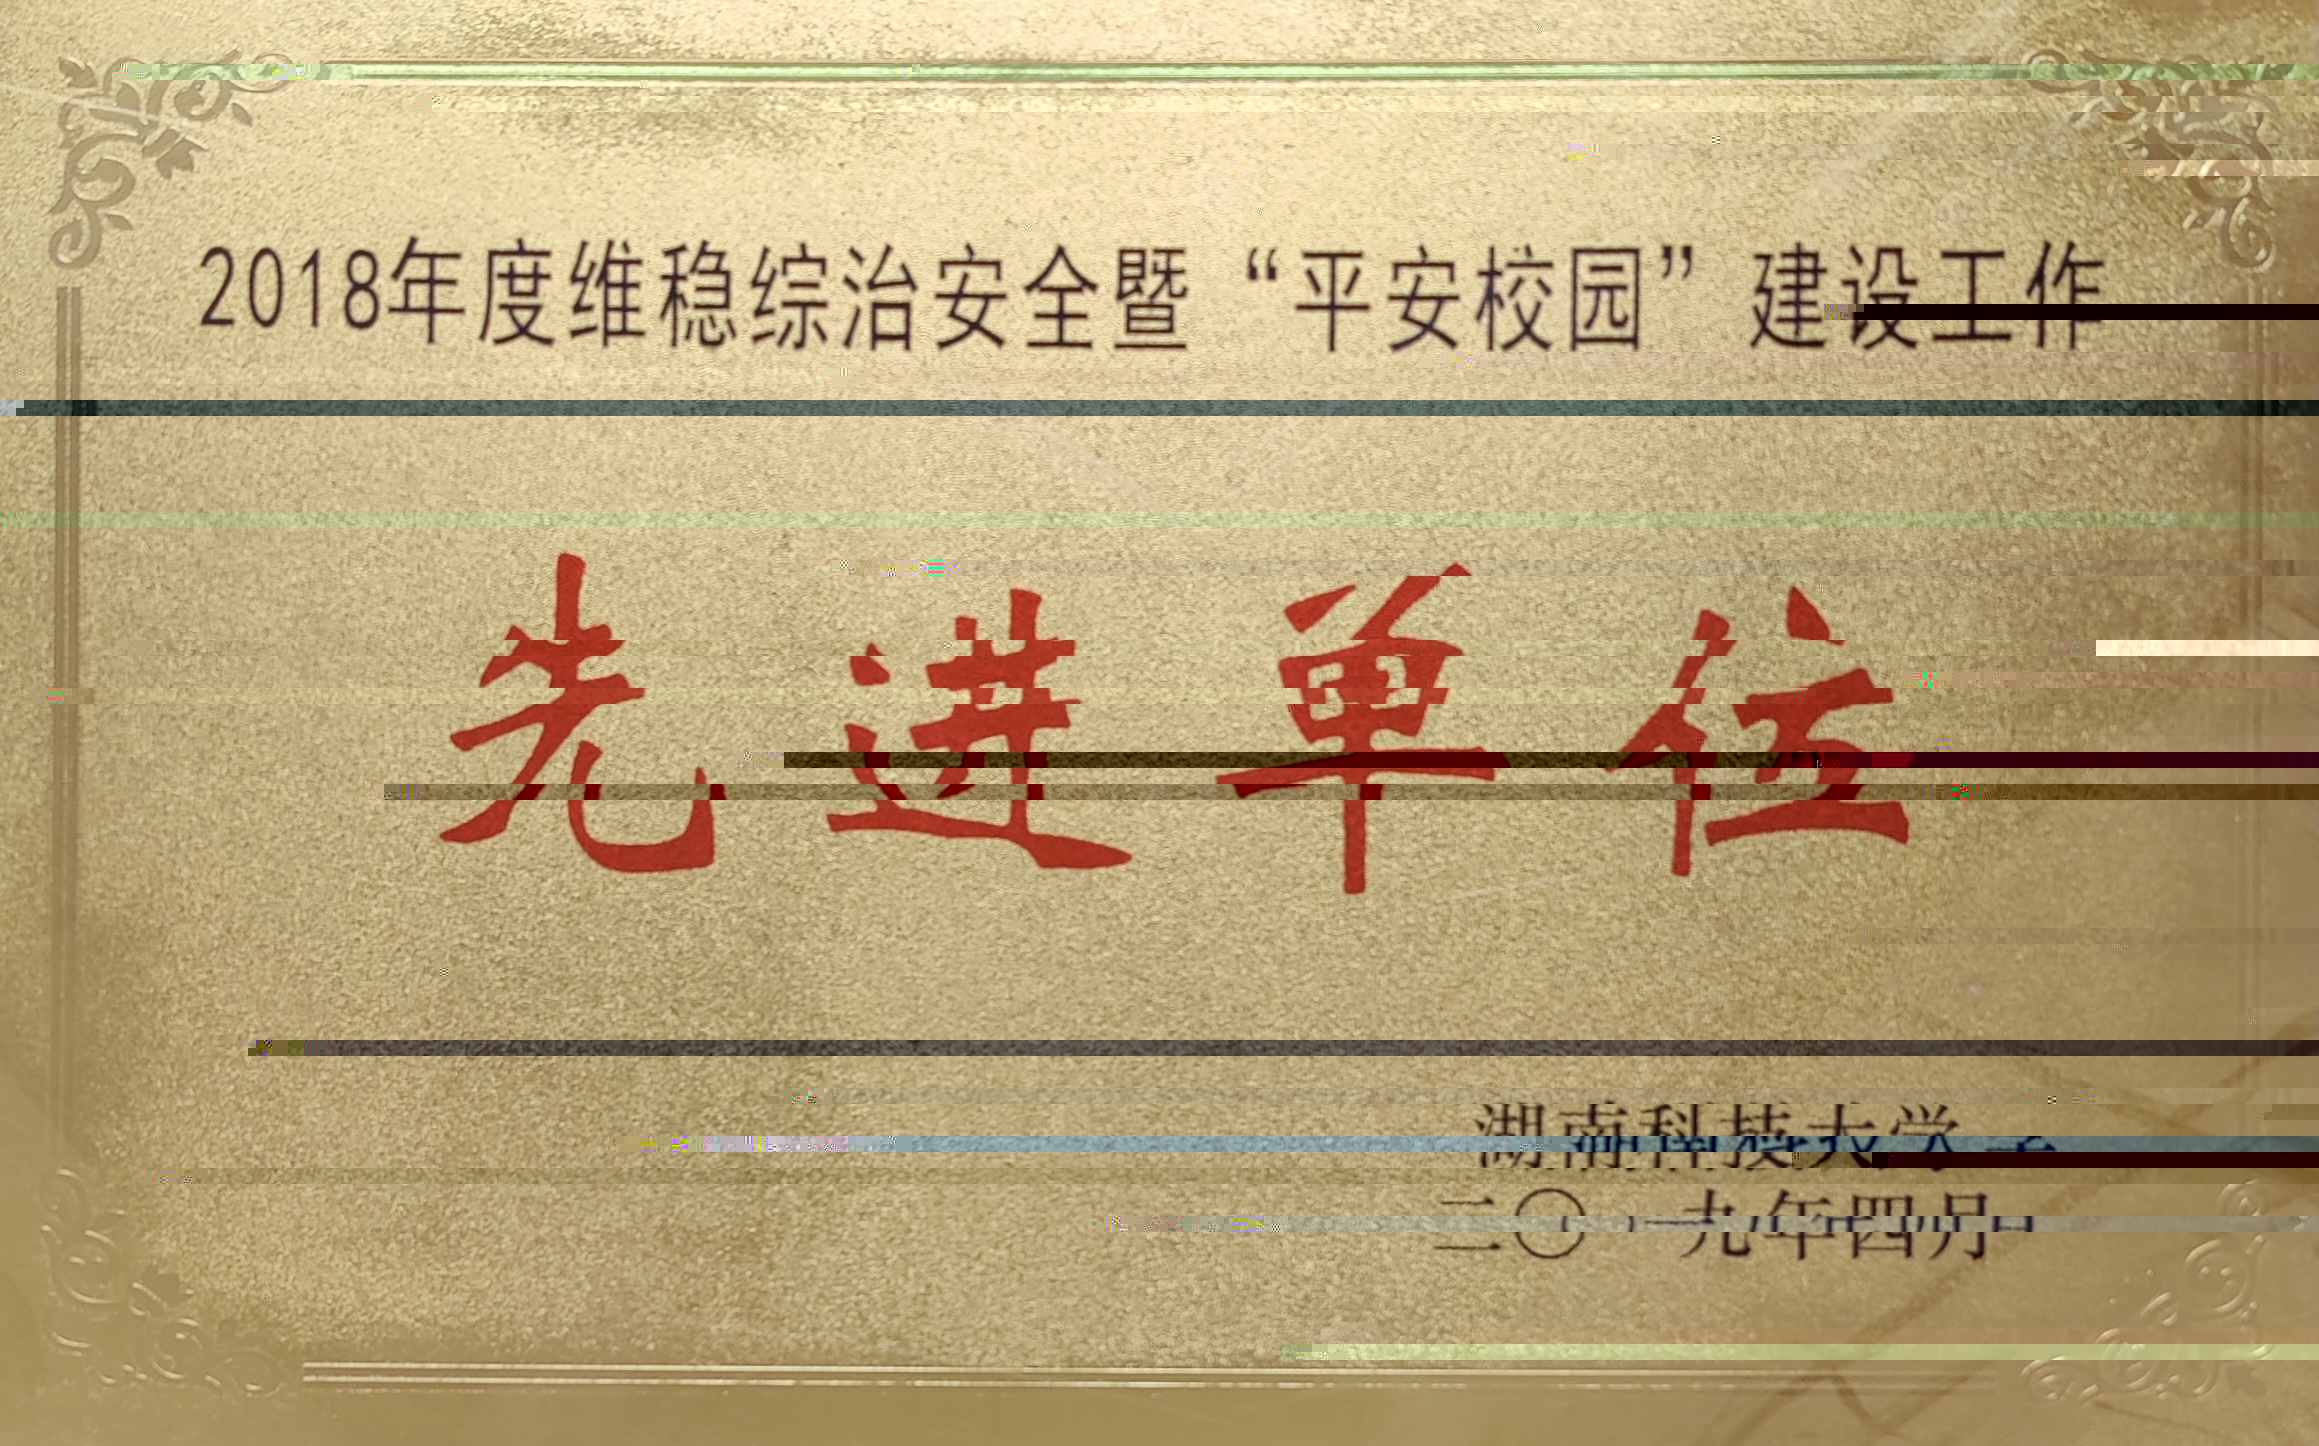 2018年度维稳综治安全暨“平安校园”建设工作
先进单位
湖南科技大学
二〇一九年四月